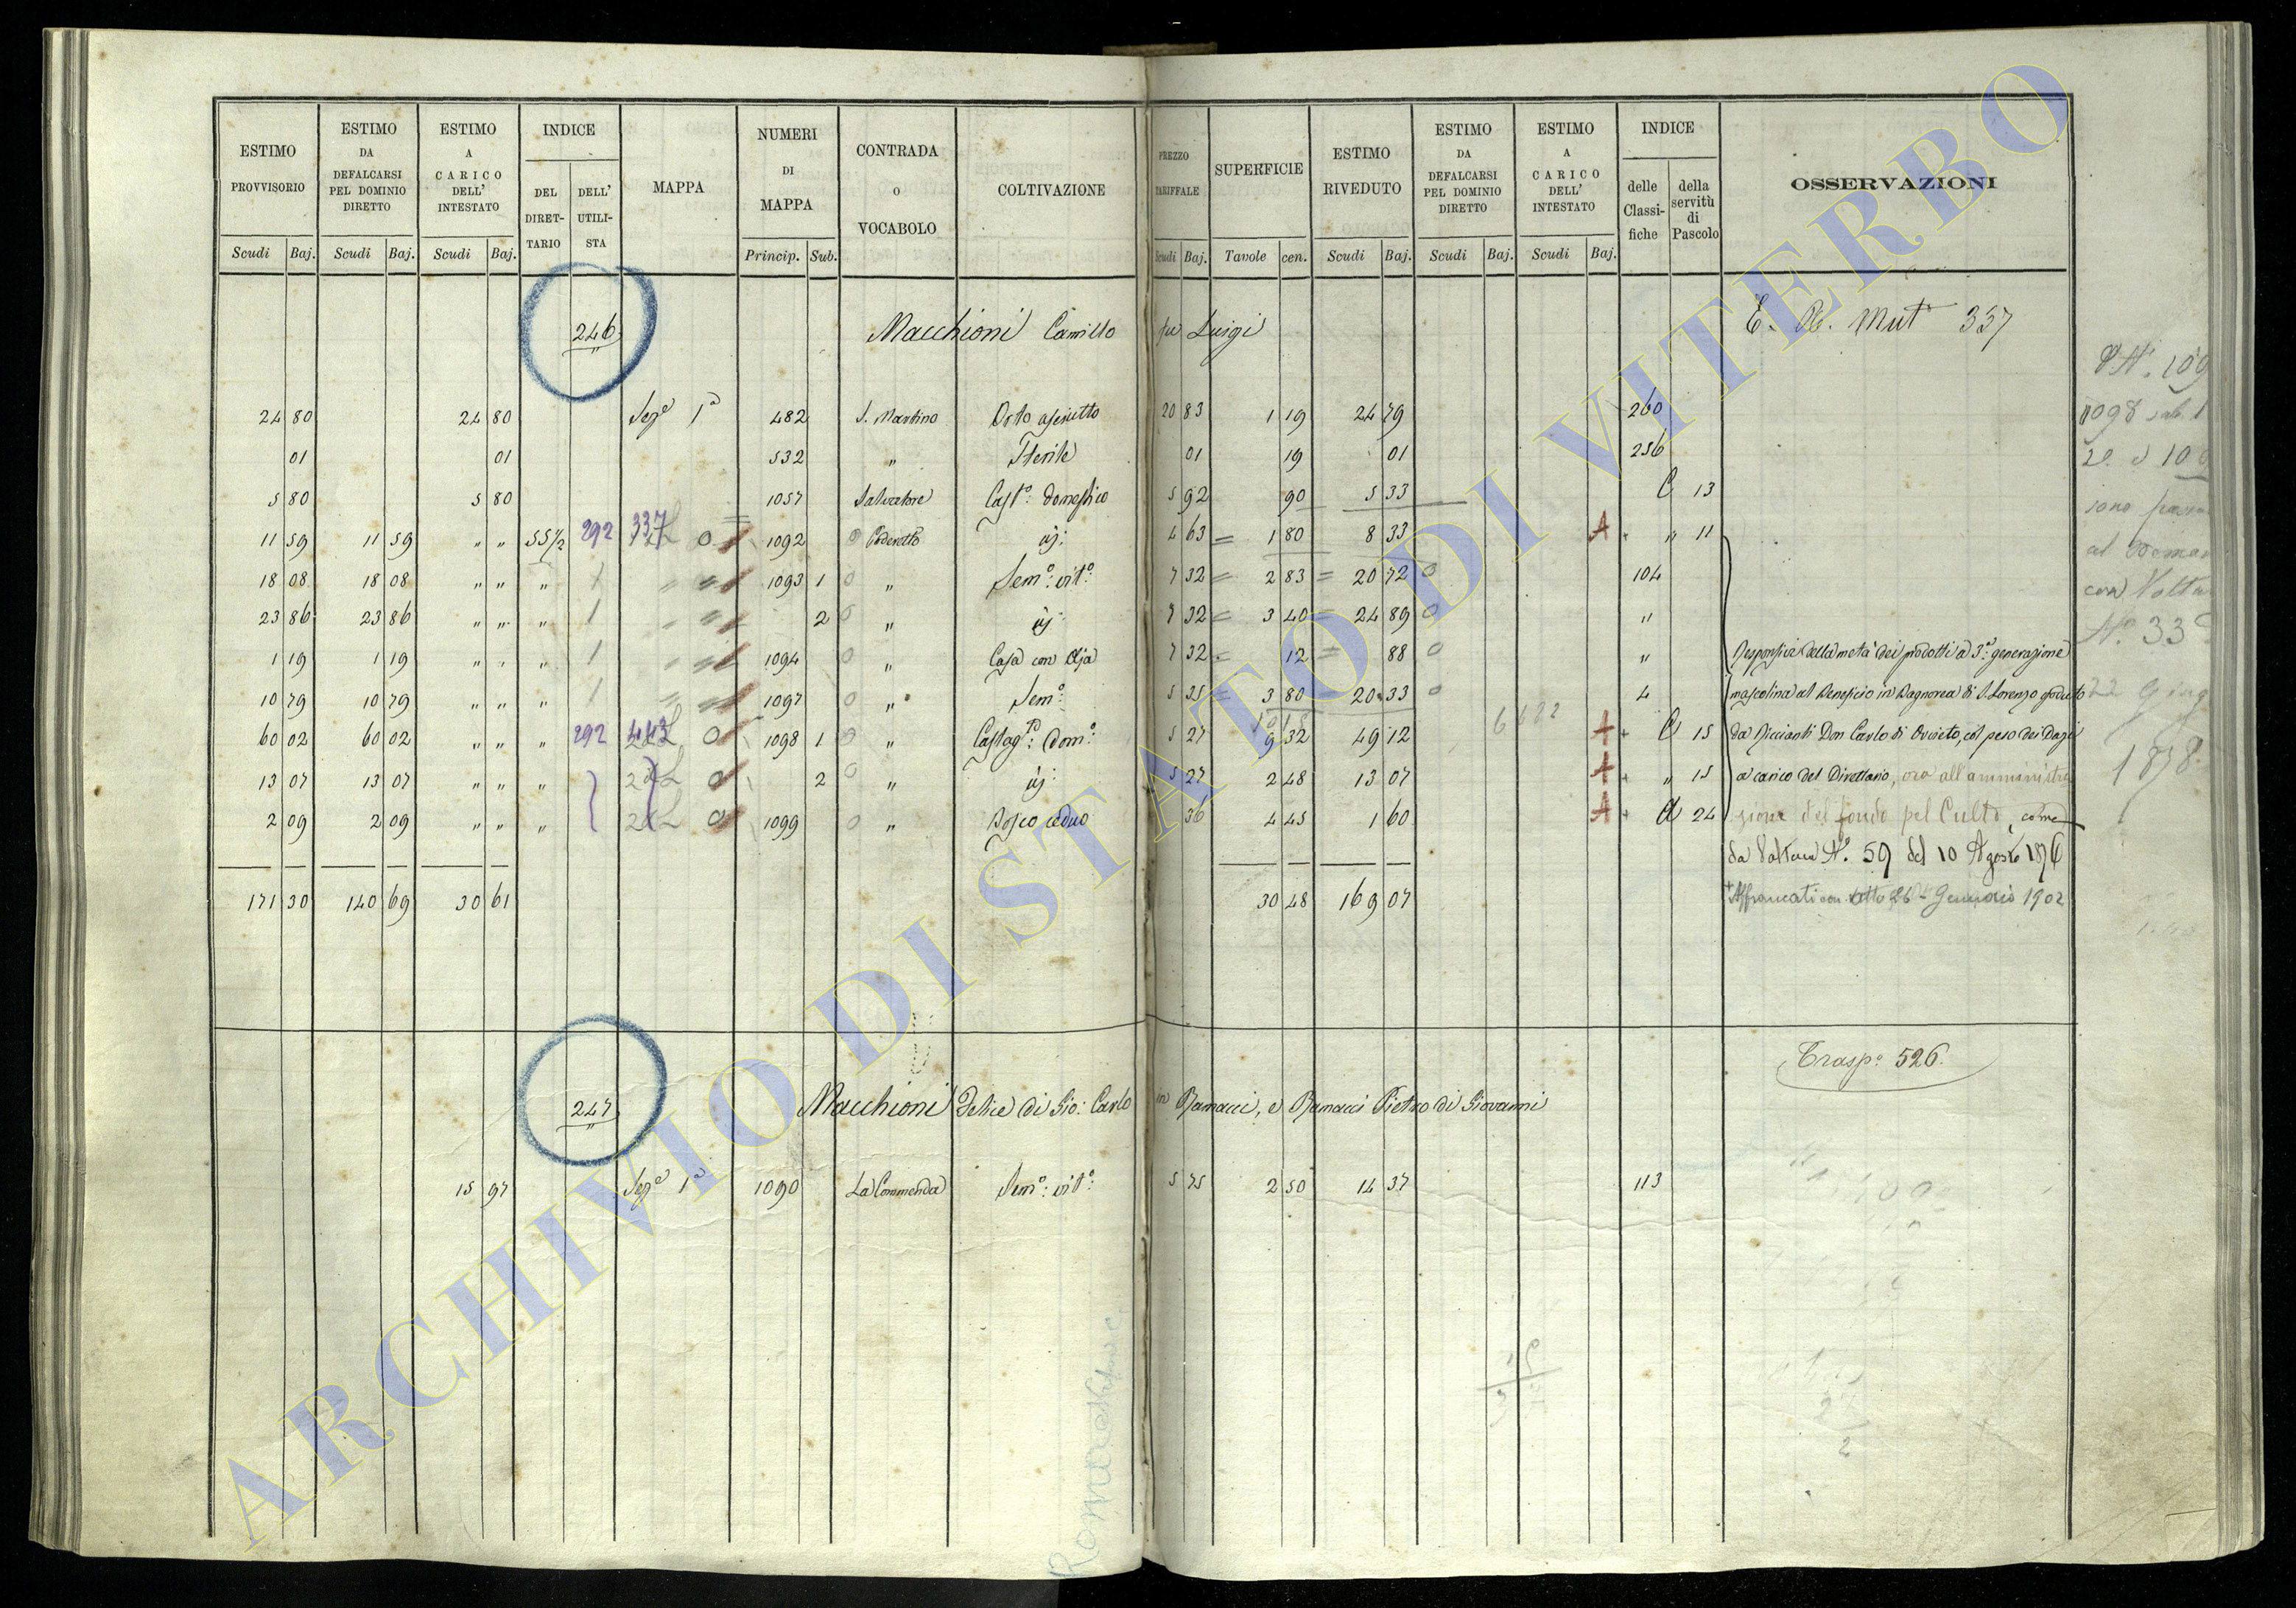 ESTIMO PROVVISORIO | ESTIMO DA DEFALCARSI PEL DOMINIO DIRETTO | ESTIMO A CARICO DELL' INTESTATO | INDICE | MAPPA | NUMERI DI MAPPA | CONTRADA O VOCABOLO | COLTIVAZIONE | PREZZO TARIFFALE | SUPERFICIE | ESTIMO RIVEDUTO | ESTIMO DA DEFALCARSI PEL DOMINIO DIRETTO | ESTIMO A CARICO DELL' INTESTATO | INDICE | OSSERVAZIONI
DEL DIRETTARIO | DELL' UTILISTA | delle Classifiche | della servitù di Pascolo
Scudi | Baj. | Scudi | Baj. | Scudi | Baj. | Princip. | Sub. | Scudi | Baj. | Tavole | cen. | Scudi | Baj. | Scudi | Baj. | Scudi | Baj.
246 Macchioni Camillo fu Luigi E. R. Mut 337
24 80 | 24 80 | Sez.e 1a | 482 | S. Martino | Orto asciutto | 20 83 | 1 19 | 24 79 | 260
01 | 01 | 532 | " | Sterile | 01 | 19 | 01 | 256
5 80 | 5 80 | 1057 | Salvatore | Cast.o domestico | 5 92 | 90 | 5 33 | C 13
11 59 | 11 59 | " " | 55 1/2 | 292 | 337 | 0 | 1092 | 0 Poderetto | id: | 4 63 | 1 80 | 8 33 | A + " 11
18 08 | 18 08 | " " | " | 1093 | 1 | 0 " | Sem.o: vit.o | 7 32 | 2 83 | 20 72 | 0 | 104
23 86 | 23 86 | " " | " | 2 | 0 " | id: | 7 32 | 3 40 | 24 89 | 0 | "
1 19 | 1 19 | " " | " | 1094 | 0 " | Casa con Aja | 7 32 | 12 | 88 | 0 | "
Responsivi della metà dei prodotti a 3.a generazione
10 79 | 10 79 | " " | " | 1097 | 0 " | Sem.o | 5 35 | 3 80 | 20 33 | 0 | 4
mascolina al Beneficio in Bagnorea di S. Lorenzo goduto
60 02 | 60 02 | " " | " | 292 | 443 | 0 | 1098 | 1 | 0 " | Castag.to: Dom.o | 5 27 | 9 32 | 49 12 | A + C 15
da Ricciardi Don Carlo di Orvieto, col peso dei Dazi
13 07 | 13 07 | " " | " | 0 | 2 | 0 " | id: | 5 27 | 2 48 | 13 07 | A + " 15
a carico del Direttario, ora all'amministra
2 09 | 2 09 | " " | " | 0 | 1099 | 0 " | Bosco ceduo | 36 | 4 45 | 1 60 | A + A 24
zione del fondo pel Culto, come
da Voltura N.o 59 del 10 Agosto 1876
171 30 | 140 69 | 30 61 | 30 48 | 169 07
+ Affrancati con atto 26 Gennaio 1902
1098 sub 1
al Deman
con Voltu
1878.
Trasp.o 526.
247 Macchioni Felice di Gio: Carlo in Ramacci, e Ramacci Pietro di Giovanni
15 97 | Sez.e 1a | 1090 | La Commenda | Sem.o: vit.o: | 5 75 | 2 50 | 14 37 | 113
ARCHIVIO DI STATO DI VITERBO